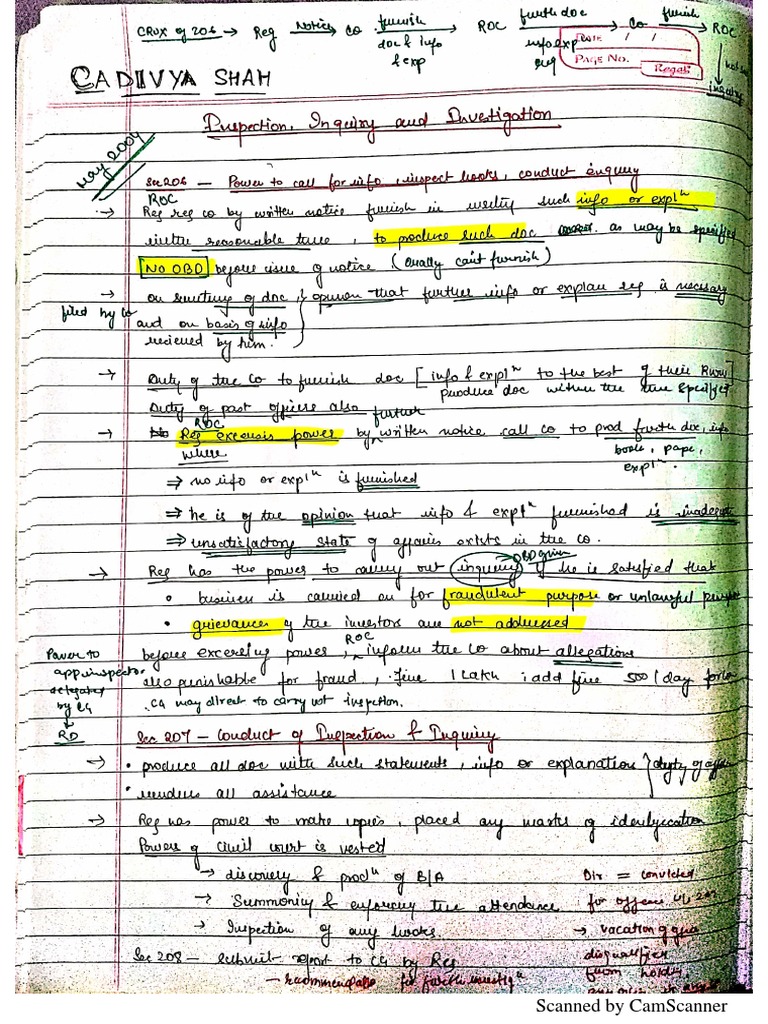 CRUX of 206 → Reg Notice → Co furnish → ROC furth doc → Co furnish → ROC
doc & info & exp
info exp req
DATE / /
PAGE No.
Regal
inquiry
CA DIVYA SHAH
Inspection, Inquiry and Investigation
May 2004
Sec 206 – Power to call for info, inspect books, conduct enquiry
ROC
→ Reg req co by written notice furnish in writing such info or expl^n
within reasonable time, to produce such doc as may be specified
NO OBD before issue of notice (orally can't furnish)
→ on scrutiny of doc, } opinion that further info or explan req is necessary
filed by Co
and on basis of info
recieved by him.
→ Duty of the Co to furnish doc [info & expl^n to the best of their
produce doc within the time specified
Duty of past officers also
ROC further
→ Reg excersis power by written notice call Co to prod further doc, info
where book, pape, expl^n.
⇒ no info or expl^n is furnished
⇒ he is of the opinion that info & expl^n furnished is inadequate
⇒ unsatisfactory state of affairs exists in the co.
OBD given
→ Reg has the power to carry out inquiry if he is satisfied that
• business is carried on for fraudulent purpose or unlawful
• grievances of the investors are not addressed
ROC
before excersing power, inform the Co about allegations
also punishable for fraud, fine 1 Lakh, add fine 500/day
CG may direct to carry out inspection.
Power to
app inspector
delegated
by CG
↓
RD
Sec 207 – Conduct of Inspection & Inquiry
→ • produce all doc with such statements, info or explanation } duty of
• renders all assistance
→ Reg has power to make copies, placed any marks of identification
Powers of civil court is vested
→ discovery & prod^n of B/A
→ Summoning & enforcing the attendance
→ Inspection of any books.
Dir = convicted
for offence u/s 207
→ vacation of
disqualifies
from holding
Sec 208 – submit report to CG by Reg
– recommendation for further investig^n
Scanned by CamScanner